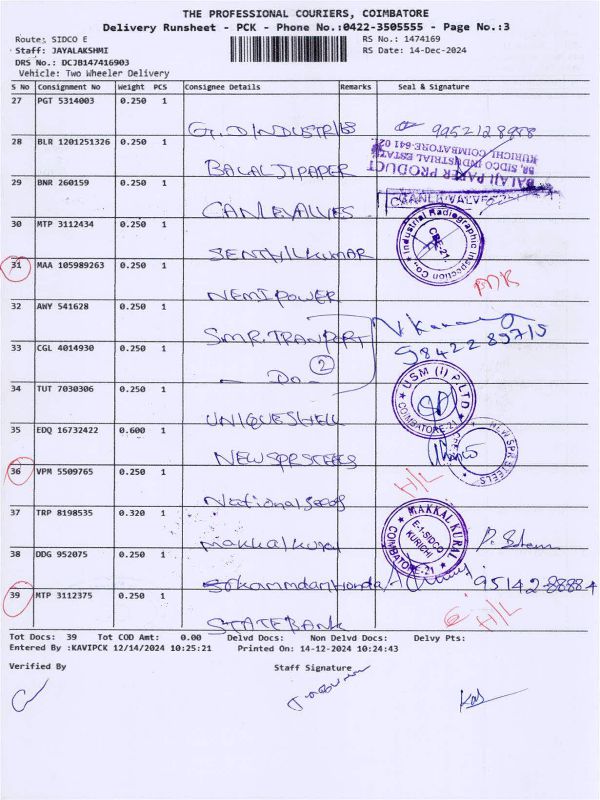 THE PROFESSIONAL COURIERS, COIMBATORE
Delivery Runsheet - PCK - Phone No.:0422-3505555 - Page No.:3
Route: SIDCO E
RS No.: 1474169
Staff: JAYALAKSHMI
RS Date: 14-Dec-2024
DRS No.: DCJB147416903
Vehicle: Two Wheeler Delivery
S No Consignment No Weight PCS Consignee Details Remarks Seal & Signature
27 PGT 5314003 0.250 1
G.D INDUSTRIES 9952128988
28 BLR 1201251326 0.250 1
BALAJI PAPER
BALAJI PAPER PRODUCT
58, SIDCO INDUSTRIAL ESTATE
KURICHI, COIMBATORE-641 021
29 BNR 260159 0.250 1
CANLEVALVES
30 MTP 3112434 0.250 1
SENTHILKUMAR
Industrial Radiographic Inspection Co.,
CBE-21
31 MAA 105989263 0.250 1
NEMI POWER
32 AWY 541628 0.250 1
SMR. TRANPORT
33 CGL 4014930 0.250 1
- Do - 2
34 TUT 7030306 0.250 1
UNIQUE SHELL
USM (I) P.LTD
COIMBATORE-21
35 EDQ 16732422 0.600 1
NEWSPRSTEELS
NEW SPR STEELS
36 VPM 5509765 0.250 1
National Seeds
H/L
37 TRP 8198535 0.320 1
makkal kural
MAKKAL KURAL
E-1-SIDCO
KURICHI
COIMBATORE-21
38 DDG 952075 0.250 1
39 MTP 3112375 0.250 1
STATE BANK
H/L
Tot Docs: 39 Tot COD Amt: 0.00 Delvd Docs: Non Delvd Docs: Delvy Pts:
Entered By :KAVIPCK 12/14/2024 10:25:21 Printed On: 14-12-2024 10:24:43
Verified By Staff Signature